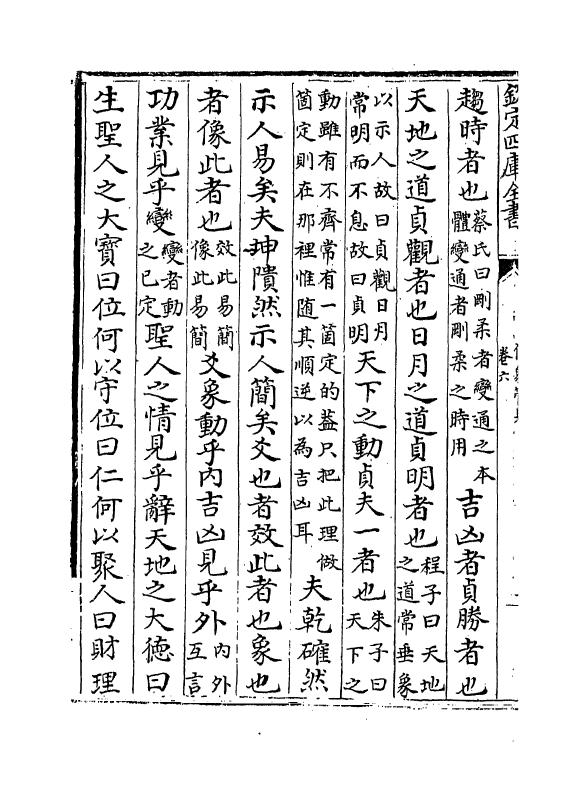 欽定四庫全書
卷六
趨時者也蔡氏曰剛柔者變通之本體變通者剛柔之時用吉凶者貞勝者也
天地之道貞觀者也日月之道貞明者也程子曰天地之道常垂象
以示人故曰貞觀日月常明而不息故曰貞明天下之動貞夫一者也朱子曰天下之
動雖有不齊常有一箇定的葢只把此理做箇定則在那裡惟随其順逆以為吉凶耳夫乾確然
示人易矣夫坤隤然示人簡矣爻也者效此者也象也
者像此者也效此易簡像此易簡爻象動乎内吉凶見乎外内外互言
功業見乎變變者動之已定聖人之情見乎辭天地之大德曰
生聖人之大寶曰位何以守位曰仁何以聚人曰財理